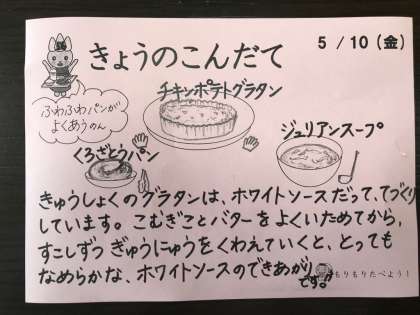 きょうのこんだて
5 / 10 (金)
ふわふわパンが
よくあうのん
チキンポテトグラタン
ジュリアンスープ
くろざとうパン
きゅうしょくのグラタンは、ホワイトソースだって、てづくり
しています。こむぎことバターをよくいためてから、
すこしずつ ぎゅうにゅうをくわえていくと、とっても
なめらかな、ホワイトソースのできあがり
です。
もりもりたべよう!